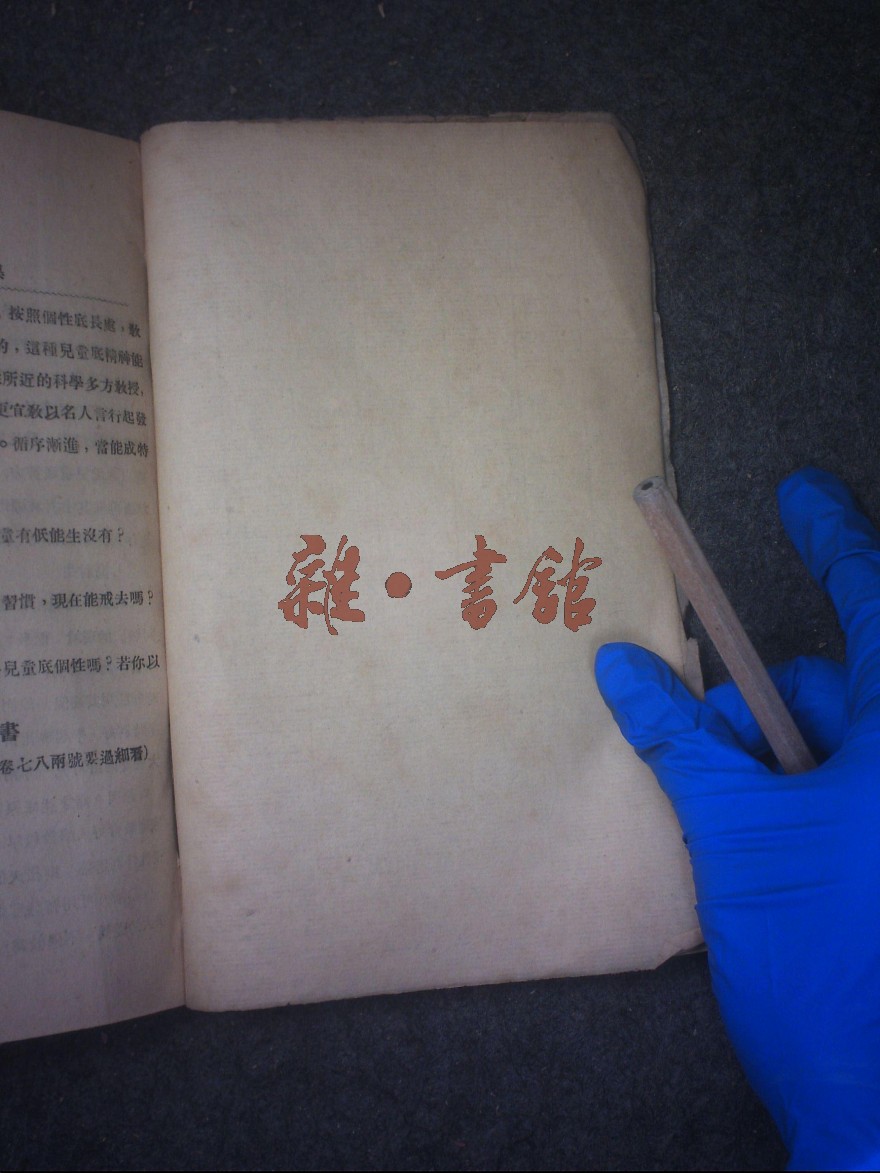 按照個性底長處，敎
的，這種兒童底精神能
所近的科學多方敎授，
更宜敎以名人言行起發
。循序漸進，當能成特
童有低能生沒有？
習慣，現在能戒去嗎？
兒童底個性嗎？若你以
書
卷七八兩號要過細看）
雜・書館